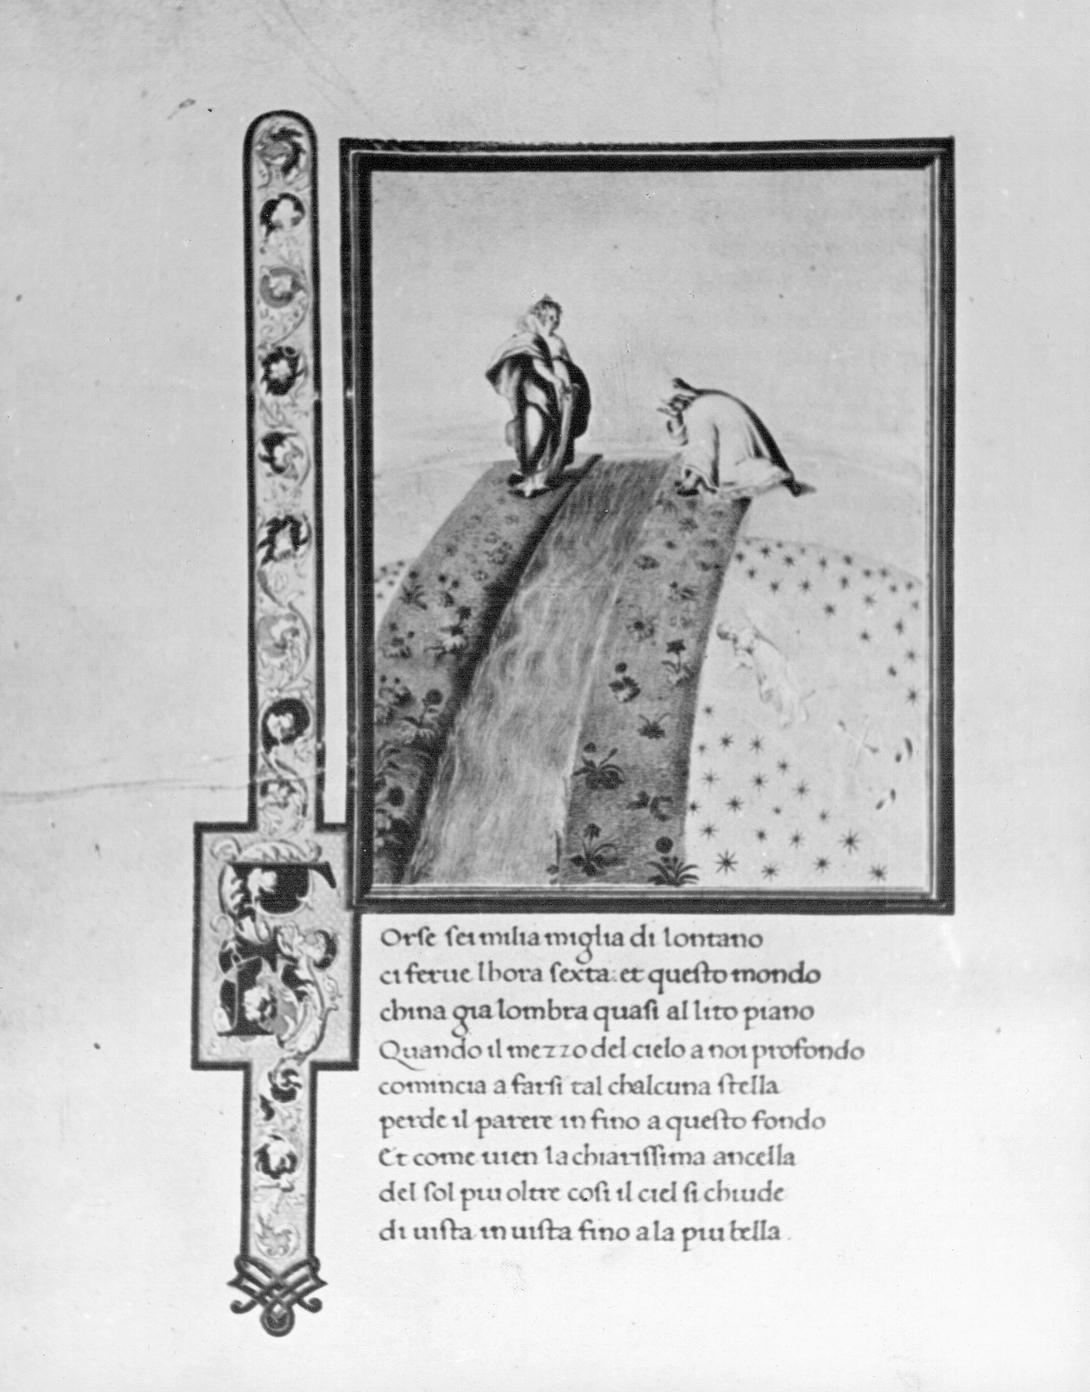 F
Orse sei milia miglia di lontano
ci ferue lhora sexta: et questo mondo
china gia lombra quasi al lito piano
Quando il mezzo del cielo a noi profondo
comincia a farsi tal chalcuna stella
perde il parere in fino a questo fondo
Et come uien la chiarissima ancella
del sol piu oltre cosi il ciel si chiude
di uista in uista fino a la piu bella.